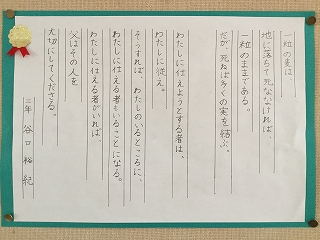 一粒の麦は、
地に落ちて死ななければ、
一粒のままである。
だが、死ねば多くの実を結ぶ。
わたしに仕えようとする者は、
わたしに従え。
そうすれば、わたしのいるところに、
わたしに仕える者もいることになる。
わたしに仕える者がいれば、
父はその人を
大切にしてくださる。
三年 谷口 裕紀